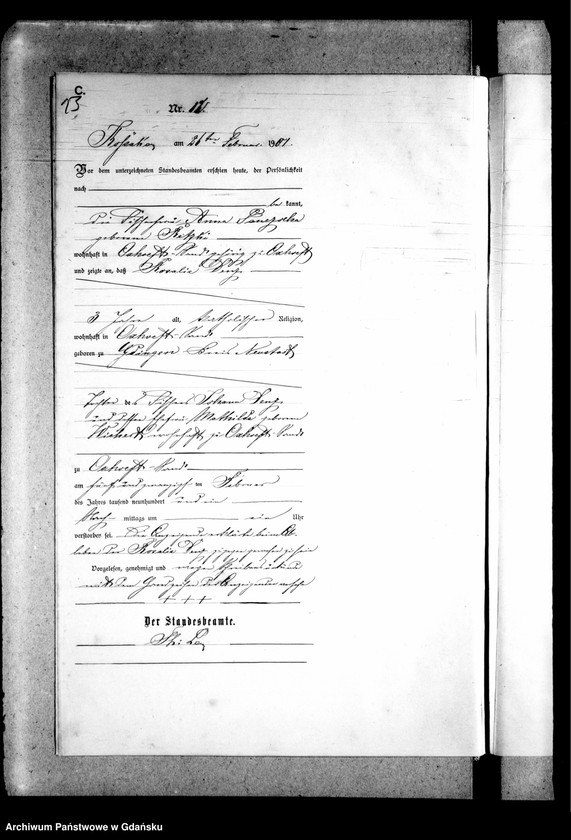 C.
13
Nr. 12.
am 26ten Februar 1901.
Vor dem unterzeichneten Standesbeamten erschien heute, der Persönlichkeit
nach
be kannt,
die Fischerfrau Anna
geborene
wohnhaft in Oxhoeft-Sande gehörig zu Oxhoeft
und zeigte an, daß Rosalie
3 Jahre alt, katholischer Religion,
wohnhaft in Oxhoeft-Sande
geboren zu Gdingen Kreis Neustadt
Tochter des Fischers Johann
und dessen Ehefrau Mathilde geborene
wohnhaft zu Oxhoeft-Sande
zu Oxhoeft-Sande
am fünf und zwanzigsten Februar
des Jahres tausend neunhundert und ein
Nach mittags um ein Uhr
verstorben sei. Die Anzeigende erklärte beim Ab-
leben der Rosalie zugegen gewesen zu sein
Vorgelesen, genehmigt und wegen
mit dem Handzeichen der Anzeigenden versehen
+ + +
Der Standesbeamte.
Archiwum Państwowe w Gdańsku